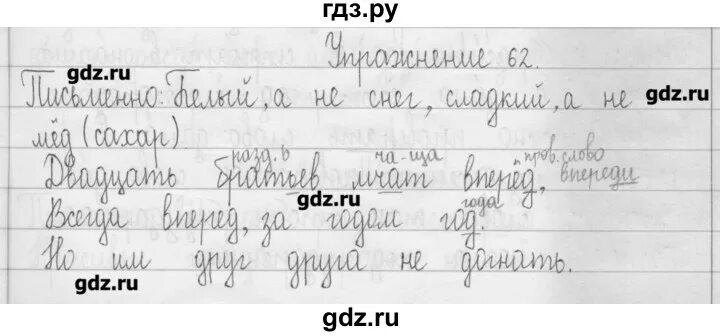 гдз.ру
Упражнение 62.
gdz.ru
Письменно: Белый, а не снег, сладкий, а не
gdz.ru
мёд (сахар)
разд. ь ча-ща пров. слово
Двадцать братьев мчат вперёд, впереди
gdz.ru
года
Всегда вперед, за годом год.
Но им друг друга не догнать.
gdz.ru
gdz.ru
gdz.ru